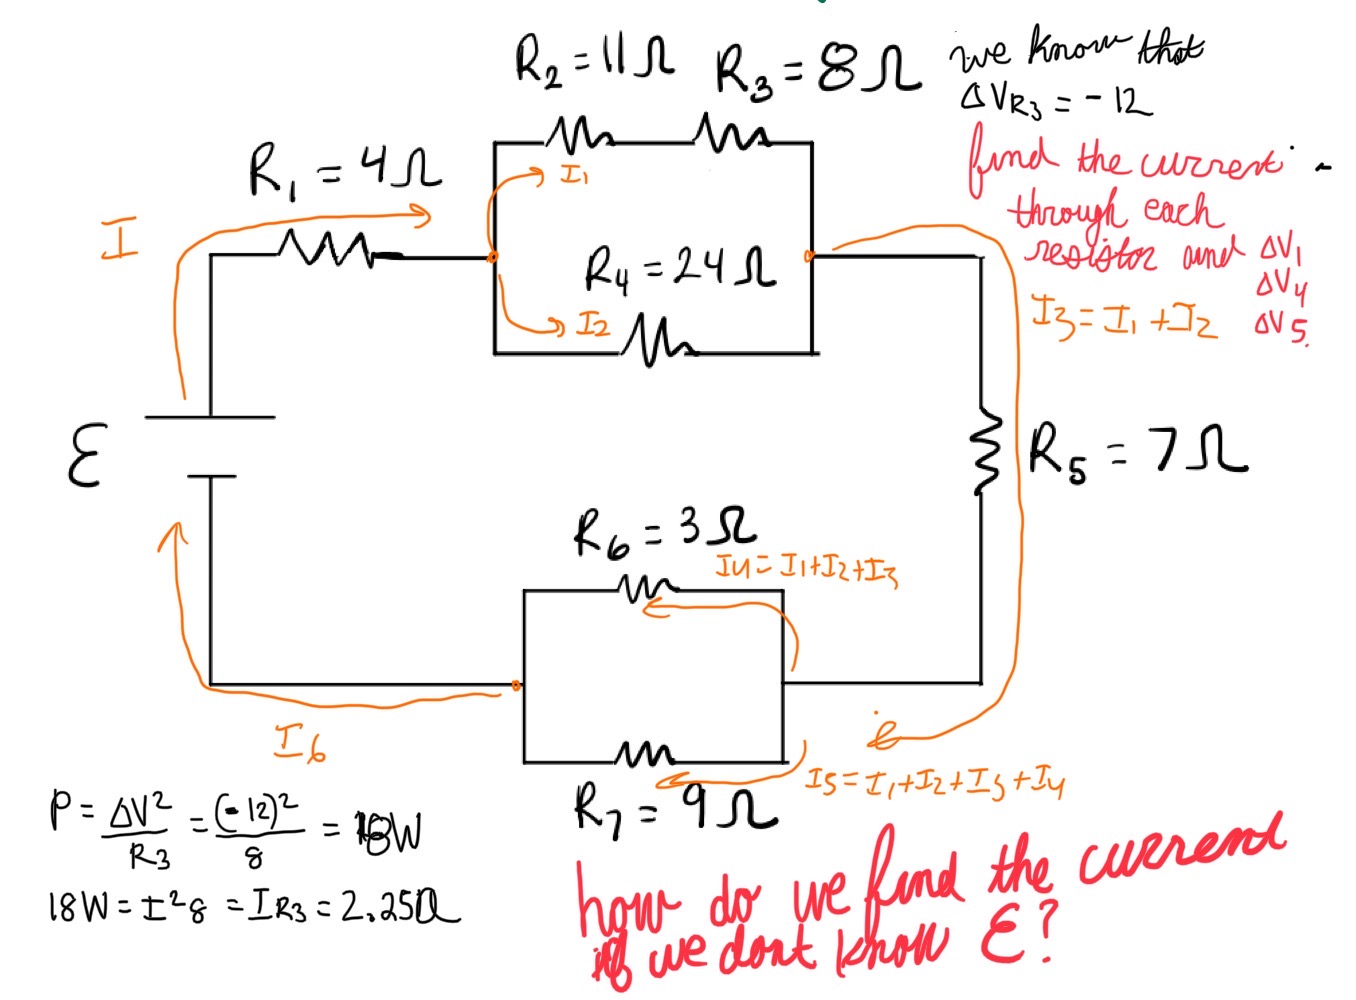 R₂ = 11Ω
R₃ = 8Ω
we know that
ΔV_R₃ = -12
find the current
through each
resistor and ΔV₁
ΔV₄
ΔV₅.
R₁ = 4Ω
I
I₁
R₄ = 24Ω
I₂
I₃ = I₁ + I₂
ε
R₅ = 7Ω
R₆ = 3Ω
I₄ = I₁ + I₂ + I₃
I₆
I₅ = I₁ + I₂ + I₃ + I₄
R₇ = 9Ω
P = ΔV²/R₃ = (-12)²/8 = 18W
18W = I²8 = I_R₃ = 2.25Ω
how do we find the current
if we dont know ε?